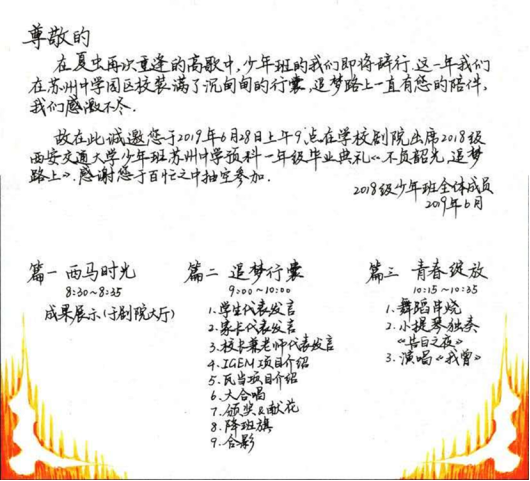 尊敬的
在夏虫再次重逢的高歌中,少年班的我们即将辞行.这一年我们
在苏州中学园区校装满了沉甸甸的行囊,追梦路上一直有您的陪伴,
我们感激不尽.
故在此诚邀您于2019年6月28日上午9点在学校剧院出席2018级
西安交通大学少年班苏州中学预科一年级毕业典礼《不负韶光,追梦
路上》.感谢您于百忙之中抽空参加.
2018级少年班全体成员
2019年6月
篇一 西马时光
8:30~8:35
成果展示(于剧院大厅)
篇二 追梦行囊
9:00~10:00
1.学生代表发言
2.家长代表发言
3.校长兼老师代表发言
4.IGEM项目介绍
5.瓦当项目介绍
6.大合唱
7.颁奖&献花
8.降班旗
9.合影
篇三 青春绽放
10:15~10:35
1.舞蹈串烧
2.小提琴独奏
《告白之夜》
3.演唱《我曾》